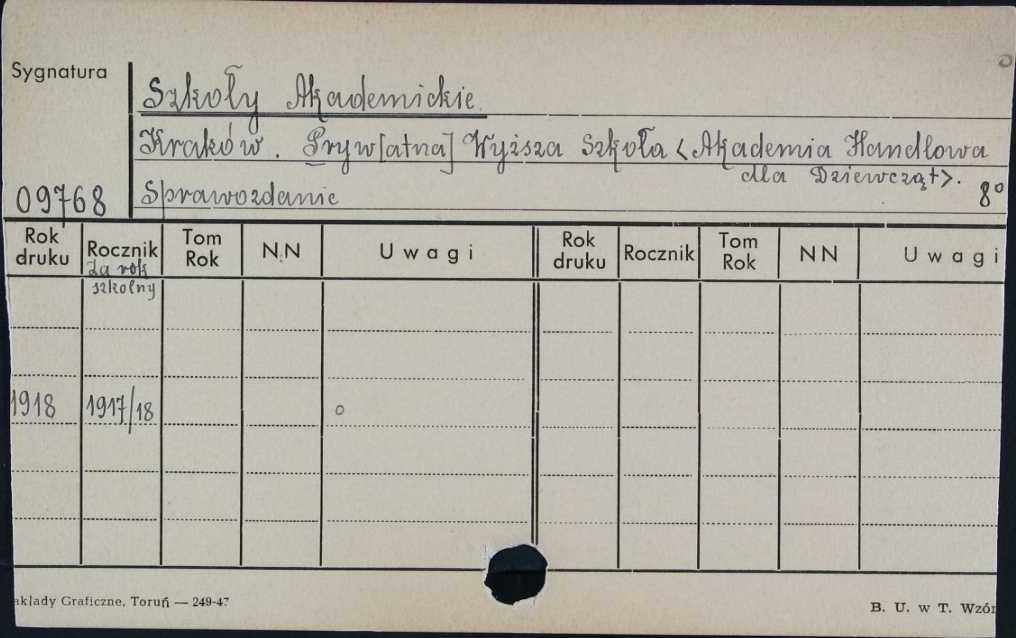 Sygnatura
Szkoły Akademickie.
Kraków. Pryw[atna] Wyższa Szkoła <Akademia Handlowa
dla Dziewcząt>.
09768 Sprawozdanie 8°
Rok druku Rocznik Tom Rok N.N Uwagi Rok druku Rocznik Tom Rok NN Uwagi
za rok
szkolny
1918 1917/18 o
akłady Graficzne, Toruń — 249-47 B. U. w T. Wzór